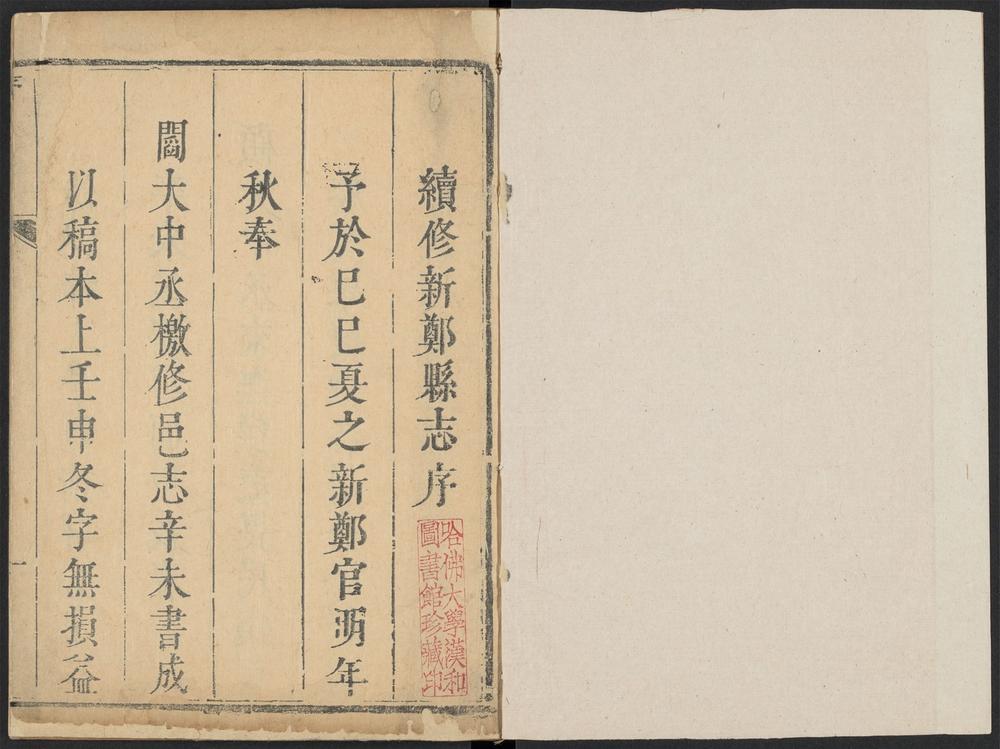 續修新鄭縣志序
哈佛大學漢和
圖書館珍藏印
予於己巳夏之新鄭官明年
秋奉
閻大中丞檄修邑志辛未書成
以稿本上壬申冬字無損益